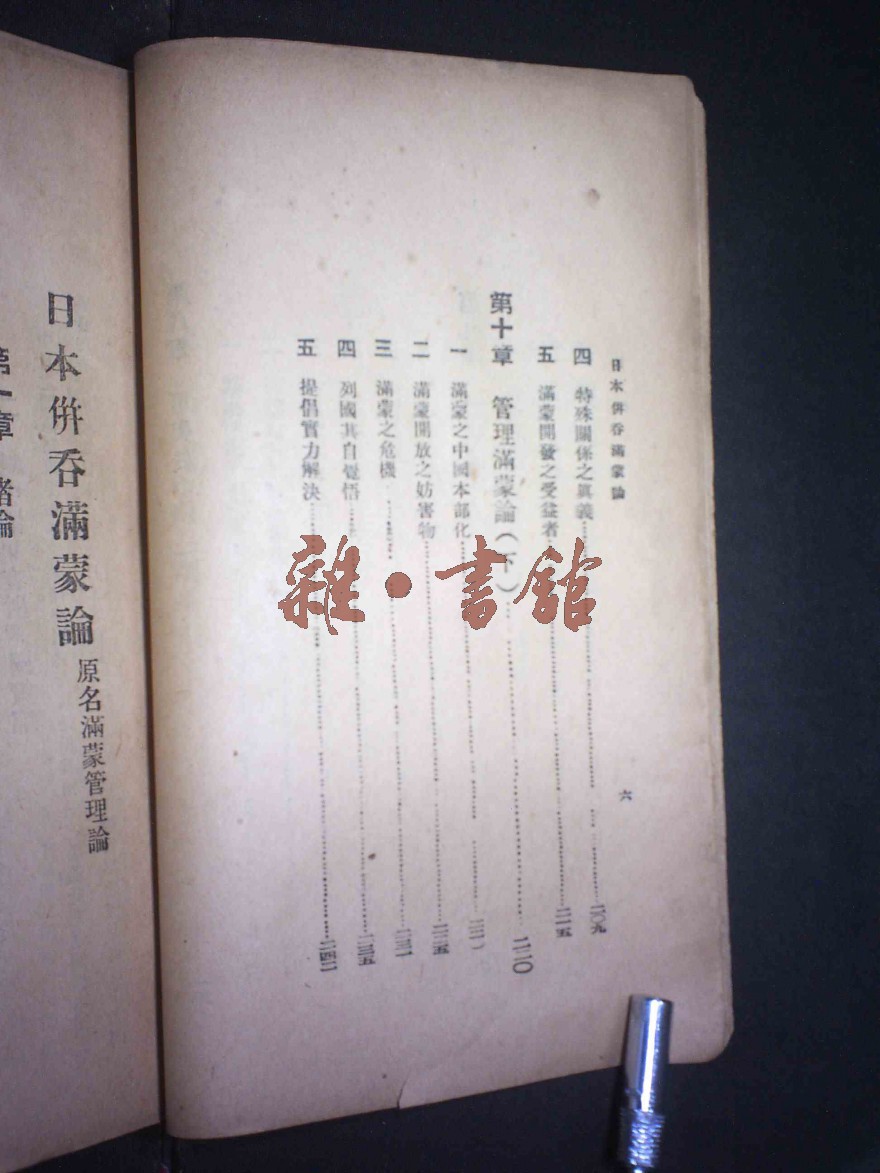 日本併吞滿蒙論
六
四 特殊關係之真義 二〇九
五 滿蒙開發之受益者 二一五
第十章 管理滿蒙論(下) 二二〇
一 滿蒙之中國本部化
二 滿蒙開放之妨害物 二二五
三 滿蒙之危機 二三一
四 列國其自覺悟 二三五
五 提倡實力解決 二四二
日本併吞滿蒙論 原名滿蒙管理論
第一章 緒論
雜·書館